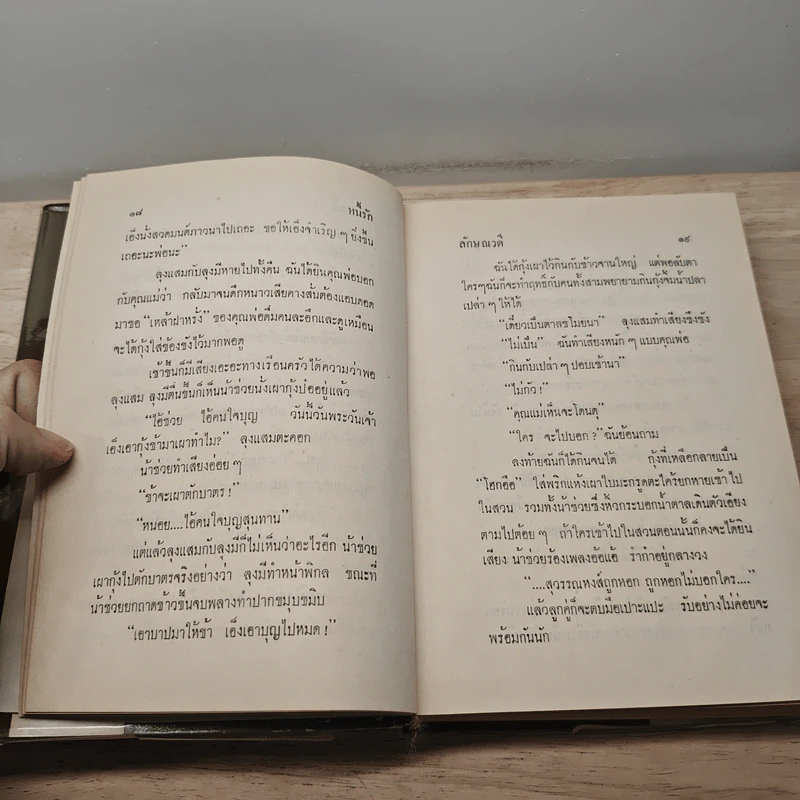 ๑๘ หนี้รัก
เอ็งนั่งสวดมนต์ภาวนาไปเถอะ ขอให้เอ็งจำเริญ ๆ ยิ่งขึ้น
เถอะนะพ่อนะ”
ลุงแสมกับลุงมีหายไปทั้งคืน ฉันได้ยินคุณพ่อบอก
กับคุณแม่ว่า กลับมาจนดึกหนาวเสียคางสั่นต้องแอบดอด
มาขอ “เหล้าฝาหรั่ง” ของคุณพ่อดื่มคนละอึกและดูเหมือน
จะได้กุ้งใส่ข้องขังไว้มากพอดู
เช้าขึ้นก็มีเสียงเอะอะทางเรือนครัวได้ความว่าพอ
ลุงแสม ลุงมีตื่นขึ้นก็เห็นน้าช่วยนั่งเผากุ้งป๋ออยู่แล้ว
“ไอ้ช่วย ไอ้คนใจบุญ วันนี้วันพระวันเจ้า
เอ็งเอากุ้งข้ามาเผาทำไม?” ลุงแสมตะคอก
น้าช่วยทำเสียงอ่อย ๆ
“ข้าจะเผาตักบาตร !”
“หนอย....ไอ้คนใจบุญสุนทาน”
แต่แล้วลุงแสมกับลุงมีก็ไม่เห็นว่าอะไรอีก น้าช่วย
เผากุ้งไปตักบาตรจริงอย่างว่า ลุงมีทำหน้าพิกล ขณะที่
น้าช่วยยกถาดข้าวขึ้นจบพลางทำปากขมุบขมิบ
“เอาบาปมาให้ข้า เอ็งเอาบุญไปหมด !”
ลักษณวดี ๑๙
ฉันได้กุ้งเผาไว้กินกับข้าวจานใหญ่ แต่พอลับตา
ใครๆฉันก็จะทำฤทธิ์กับคนทั้งสามพยายามกินกุ้งจิ้มน้ำปลา
เปล่า ๆ ให้ได้
“เดี๋ยวเป็นตาลขโมยนา” ลุงแสมทำเสียงขึงขัง
“ไม่เป็น” ฉันทำเสียงหนัก ๆ แบบคุณพ่อ
“กินกับเปล่า ๆ ปอบเข้านา”
“ไม่กัว !”
“คุณแม่เห็นจะโดนดุ”
“ใคร จะไปบอก ?” ฉันย้อนถาม
ลงท้ายฉันก็ได้กินจนได้ กุ้งที่เหลือกลายเป็น
“โฮกฮือ” ใส่พริกแห้งเผาใบมะกรูดตะไคร้ยกหายเข้าไป
ในสวน รวมทั้งน้าช่วยซึ่งหิ้วกระบอกน้ำตาลเดินตัวเอียง
ตามไปต้อย ๆ ถ้าใครเข้าไปในสวนตอนนั้นก็คงจะได้ยิน
เสียง น้าช่วยร้องเพลงอ้อแอ้ รำก๋าอยู่กลางวง
“....สุวรรณหงส์ถูกหอก ถูกหอกไม่บอกใคร....”
แล้วลูกคู่ก็จะตบมือเปาะแปะ รับอย่างไม่ค่อยจะ
พร้อมกันนัก